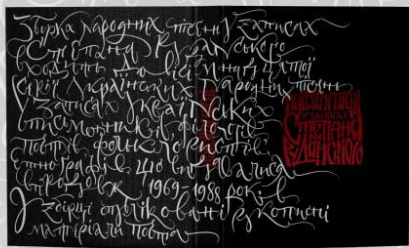 Збірка народних пісень у записах
Степана Руданського
входить до
серії українських народних пісень
у записах українських
письменників, філологів,
поетів, фольклористів,
етнографів, що видавалися
впродовж 1969-1988 років
У збірці опубліковані рукописні
матеріали поета
народні пісні
в записах
Степана
Руданського